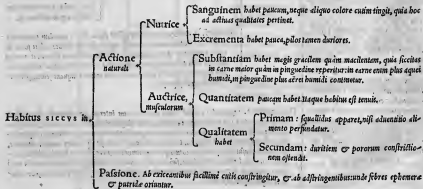 Sanguinem habet paucum, neque aliquo colore cutim tingit, quia hoc
ad actiuas qualitates pertinet.
Nutrice
Excrementa habet pauca, pilos tamen duriores.
Actione
naturali
Substantiam habet magis gracilem quàm macilentam, quia siccitas
in carne maior quàm in pinguedine reperitur: in carne enim plus aquei
humidi, in pinguedine plus aërei humidi continetur.
Auctrice,
musculorum
Quantitatem paucam habet itaque habitus est tenuis.
Habitus siccus in
Qualitatem
habet
Primam: squallidus apparet, nisi aduentitio ali-
mento perfundatur.
Secundam: duritiem & pororum constrictio-
nem ostendit.
Passione. Ab exiccantibus facillimè cutis constringitur, & ab adstringentibus: unde febres ephemeræ
& putridæ oriuntur.